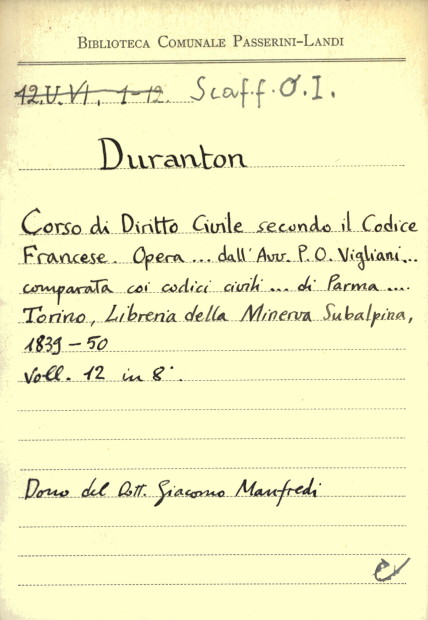 BIBLIOTECA COMUNALE PASSERINI-LANDI
12.U.VI. 1-12. Scaff. O.I.
Duranton
Corso di Diritto Civile secondo il Codice
Francese. Opera ... dall'Avv. P.O. Vigliani...
comparata coi codici civili ... di Parma ....
Torino, Libreria della Minerva Subalpina,
1839-50
Voll. 12 in 8°.
Dono del Dott. Giacomo Manfredi